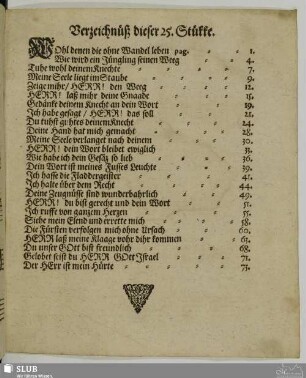 Verzeichnüß dieser 25. Stükke.
WOhl denen die ohne Wandel leben pag. 1.
Wie wird ein Jüngling seinen Weeg 4.
Tuhe wohl deinem Knechte 7.
Meine Seele liegt im Staube 9.
Zeige mihr/ HERR! den Weeg 12.
HERR! laß mihr deine Gnaade 15.
Gedänke deinem Knecht an dein Wort 19.
Ich habe gesagt/ HERR! das soll 21.
Du tuhst guhtes deinem Knecht 24.
Deine Hand hat mich gemacht 28.
Meine Seele verlanget nach deinem 30.
HERR! dein Wort bleibet ewiglich 31.
Wie habe ich dein Gesäz so lieb 36.
Dein Wort ist meines Fusses Leuchte 39.
Ich hasse die Fladdergeister 41.
Ich halte über dem Recht 44.
Deine Zeugnüsse sind wunderbahrlich 49.
HERR! du bist gerecht und dein Wort
Ich ruffe von ganzem Herzen
Siehe mein Elend und errette mich 58.
Die Fürsten verfolgen mich ohne Ursach 60.
HERR laß meine Klaage vohr dihr kommen 65.
Du unser GOtt bist freundlich 68.
Gelobet seist du HERR GOtt Israel 71.
Der HErr ist mein Hürte 75.
SLUB
Wir führen Wissen.